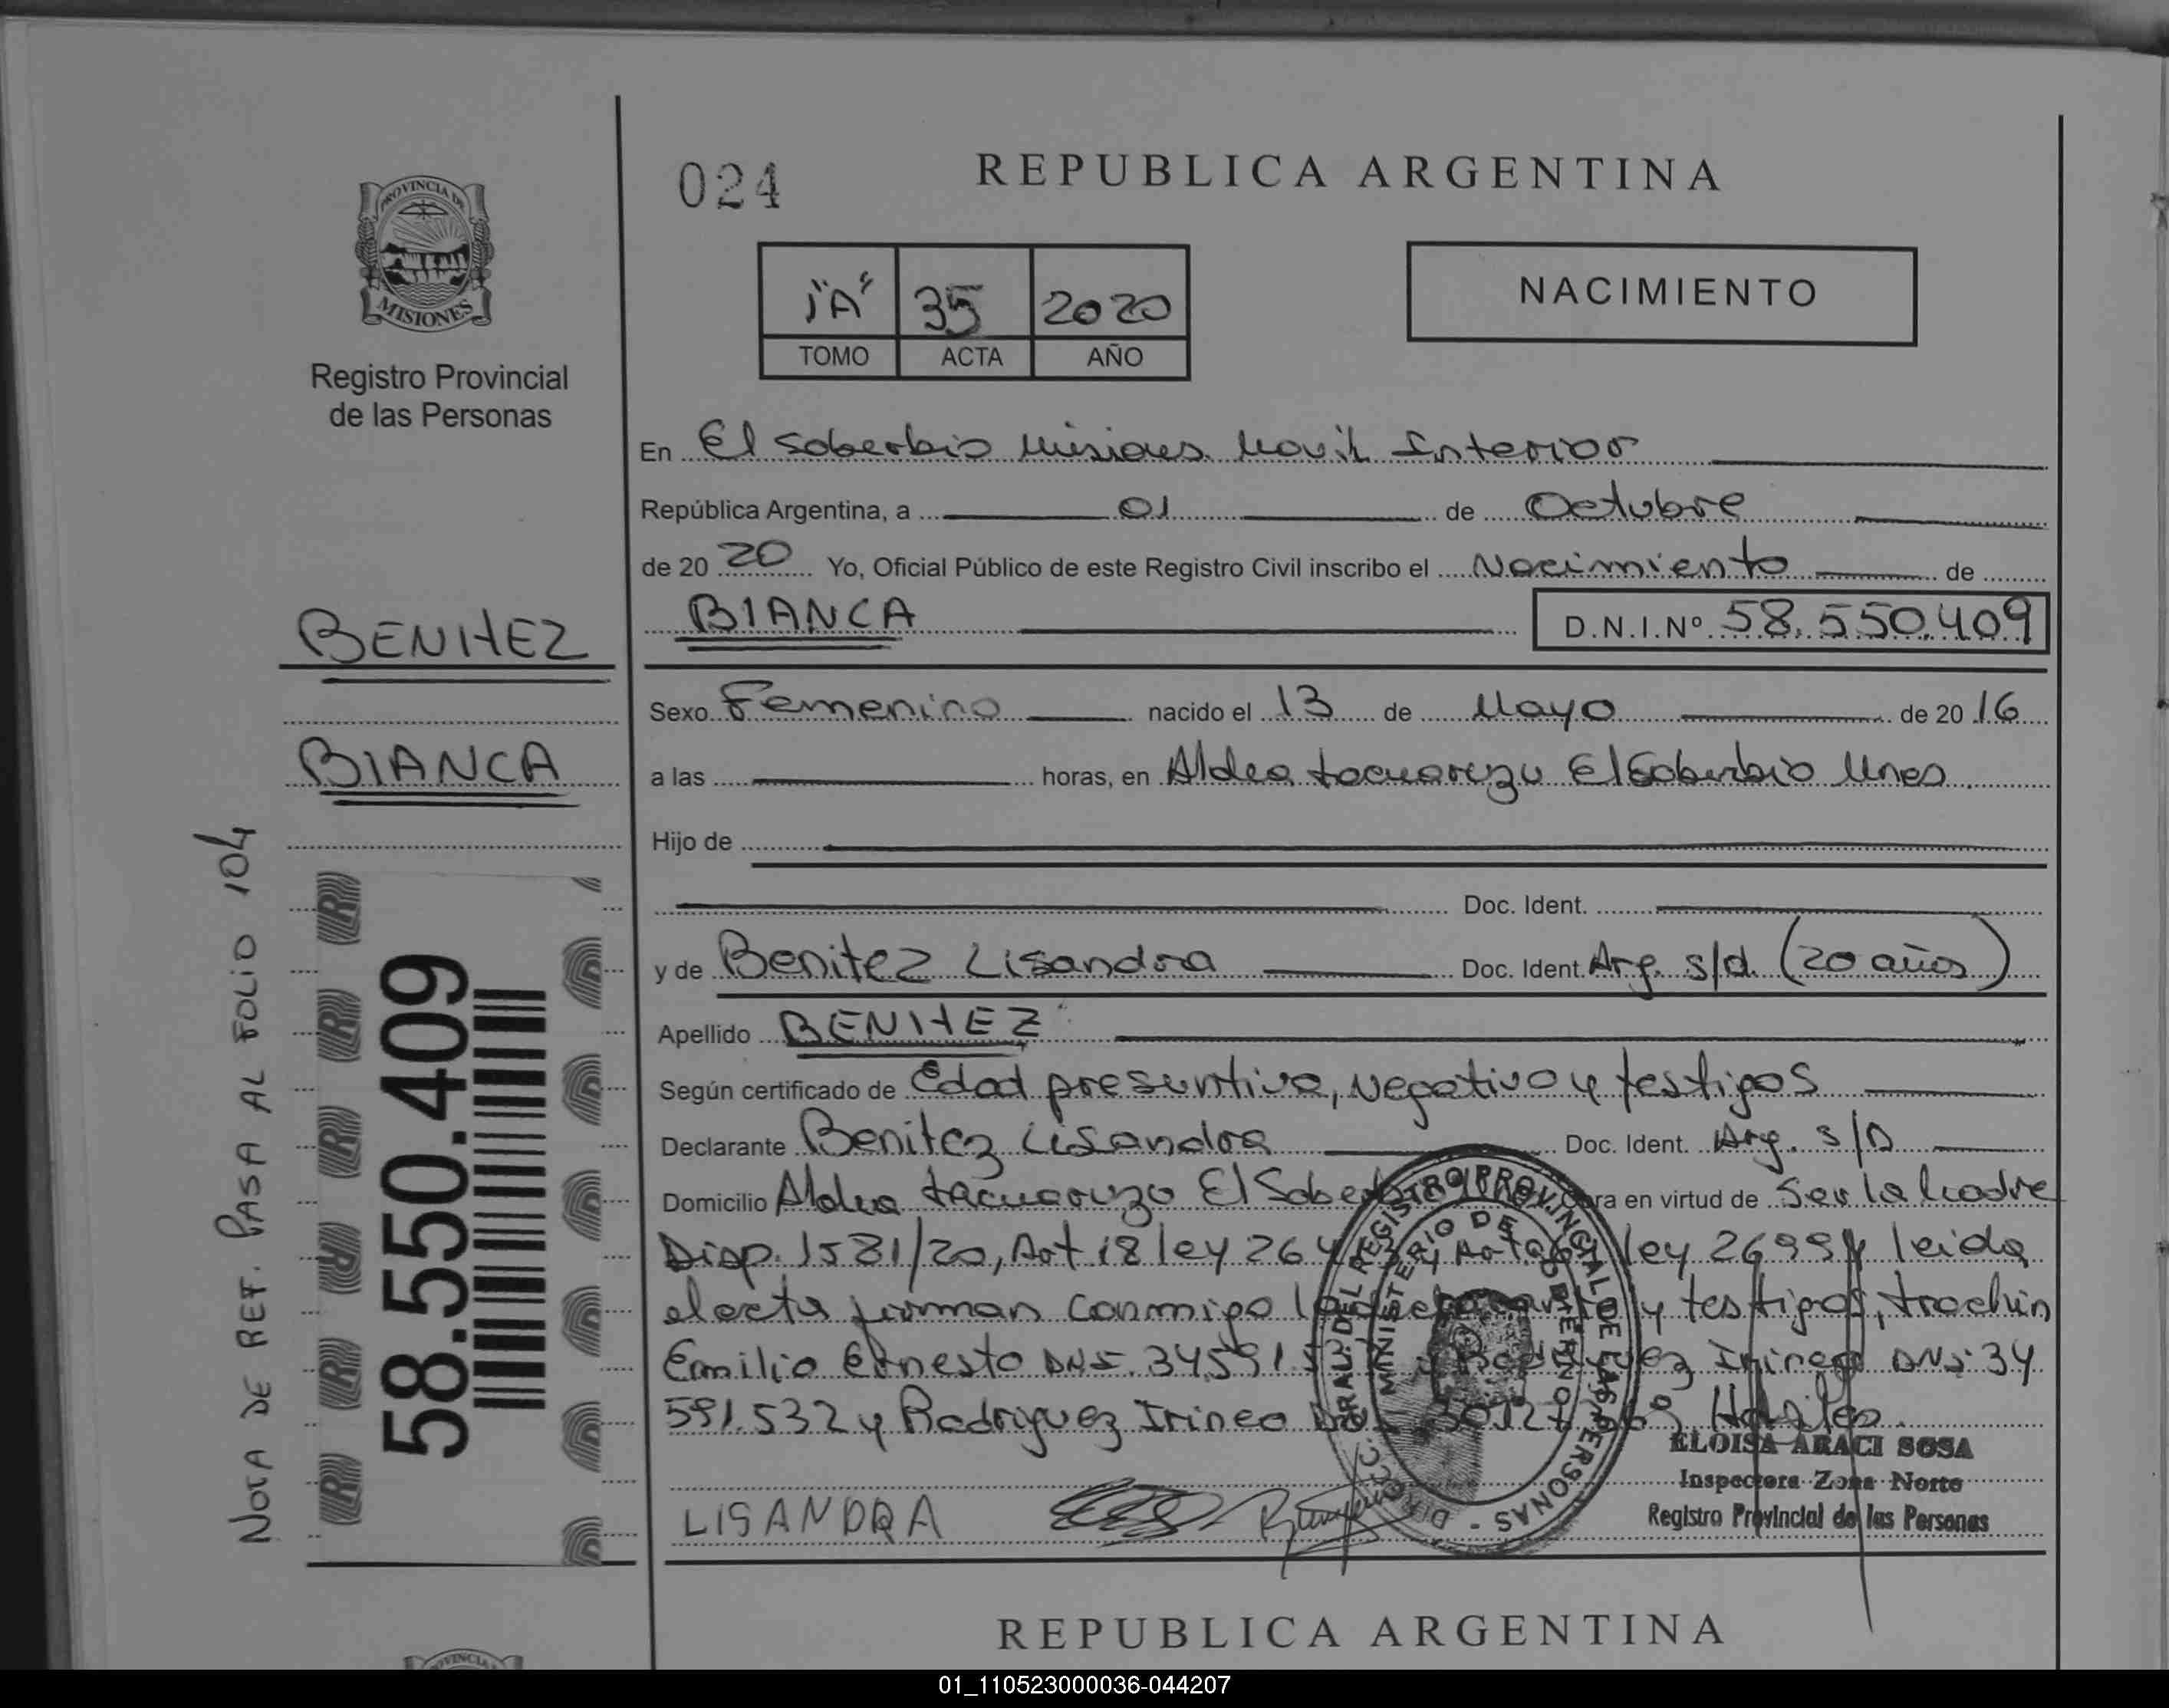 024
REPUBLICA ARGENTINA
PROVINCIA DE
MISIONES
Registro Provincial
de las Personas
"A" 35 2020
TOMO ACTA AÑO
NACIMIENTO
En El Soberbio Misiones Movil Interior
República Argentina, a 01 de Octubre
de 2020 Yo, Oficial Público de este Registro Civil inscribo el Nacimiento de
BIANCA D.N.I.Nº 58.550.409
BENITEZ
BIANCA
Sexo Femenino nacido el 13 de Mayo de 2016
a las horas, en Aldea El Soberbio Mnes
Hijo de
Doc. Ident.
y de Benitez Lisandra Doc. Ident. Arg. s/d (20 años)
Apellido BENITEZ
Según certificado de Edad presuntiva, Negativo y testigos
Declarante Benitez Lisandra Doc. Ident. Arg. S/D
Domicilio Aldea El en virtud de Ser la Madre
Disp. 1581/20, Art 18 ley ley leida
firman conmigo y testigos,
Emilio Ernesto DNI. Irineo DNI 34
591.532 y Rodriguez Irineo
LISANDRA
DIRECC. GRAL. DEL REGISTRO PROVINCIAL DE LAS PERSONAS -
MINISTERIO DE GOBIERNO
ELOISA ARACI SOSA
Inspectora Zona Norte
Registro Provincial de las Personas
58.550.409
NOTA DE REF. PASA AL FOLIO 104
REPUBLICA ARGENTINA
01_110523000036-044207